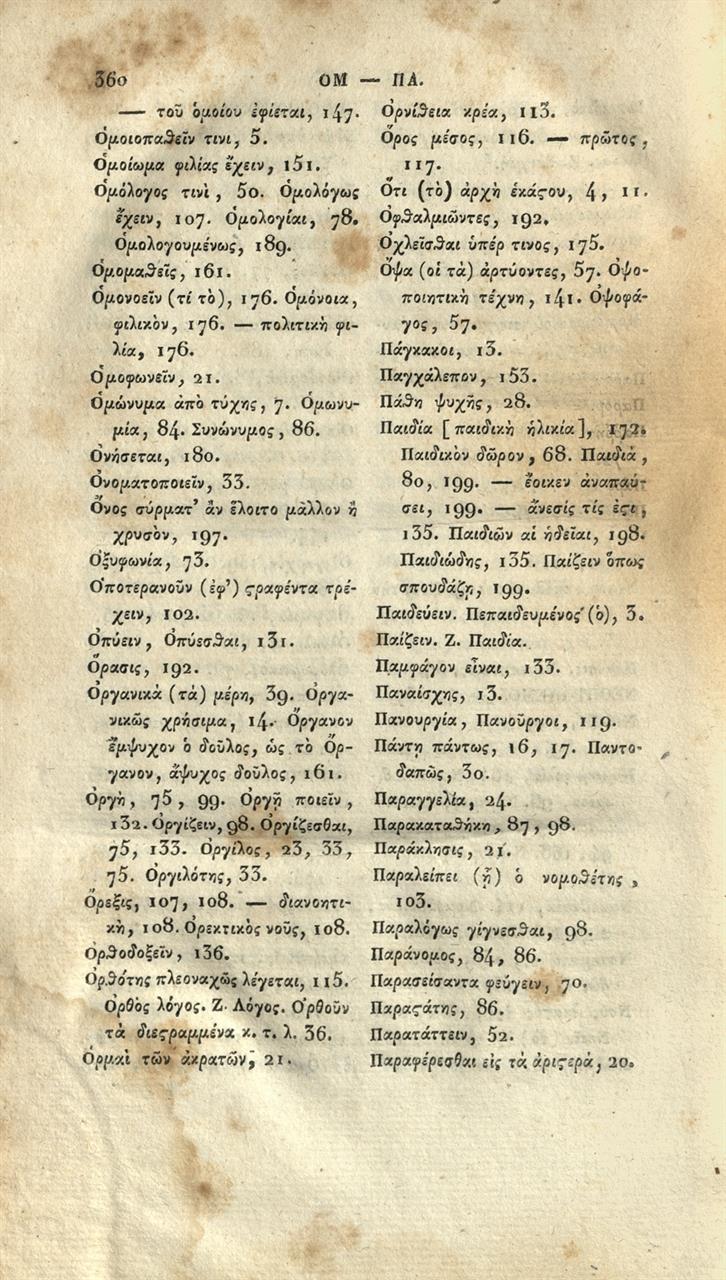 360
ΟΜ — ΠΑ.
— τοῦ ὁμοίου ἐφίεται, 147.
Ὁμοιοπαθεῖν τινι, 5.
Ὁμοίωμα φιλίας ἔχειν, 151.
Ὁμόλογος τινὶ, 50. Ὁμολόγως
ἔχειν, 107. Ὁμολογίαι, 78.
Ὁμολογουμένως, 189.
Ὁμομαθεῖς, 161.
Ὁμονοεῖν (τί τὸ), 176. Ὁμόνοια,
φιλικὸν, 176. — πολιτικὴ φι-
λία, 176.
Ὁμοφωνεῖν, 21.
Ὁμώνυμα ἀπὸ τύχης, 7. Ὁμωνυ-
μία, 84. Συνώνυμος, 86.
Ὀνήσεται, 180.
Ὀνοματοποιεῖν, 33.
Ὄνος σύρματ’ ἂν ἕλοιτο μᾶλλον ἢ
χρυσὸν, 197.
Ὀξυφωνία, 73.
Ὁποτερανοῦν (ἐφ’) ϛραφέντα τρέ-
χειν, 102.
Ὀπύειν, Ὀπύεσθαι, 131.
Ὅρασις, 192.
Ὀργανικὰ (τὰ) μέρη, 39. Ὀργα-
νικῶς χρήσιμα, 14. Ὄργανον
ἔμψυχον ὁ δοῦλος, ὡς τὸ Ὄρ-
γανον, ἄψυχος δοῦλος, 161.
Ὀργὴ, 75, 99. Ὀργῇ ποιεῖν,
132. Ὀργίζειν, 98. Ὀργίζεσθαι,
75, 133. Ὀργίλος, 23, 33,
75. Ὀργιλότης, 33.
Ὄρεξις, 107, 108. — διανοητι-
κὴ, 108. Ὀρεκτικὸς νοῦς, 108.
Ὀρθοδοξεῖν, 136.
Ὀρθότης πλεοναχῶς λέγεται, 115.
Ὀρθὸς λόγος. Ζ. Λόγος. Ὀρθοῦν
τὰ διεϛραμμένα κ. τ. λ. 36.
Ὁρμαὶ τῶν ἀκρατῶν, 21.
Ὀρνίθεια κρέα, 113.
Ὅρος μέσος, 116. — πρῶτος,
117.
Ὅτι (τὸ) ἀρχὴ ἑκάϛου, 4, 11.
Ὀφθαλμιῶντες, 192.
Ὀχλεῖσθαι ὑπέρ τινος, 175.
Ὄψα (οἱ τὰ) ἀρτύοντες, 57. Ὀψο-
ποιητικὴ τέχνη, 141. Ὀψοφά-
γος, 57.
Πάγκακοι, 13.
Παγχάλεπον, 153.
Πάθη ψυχῆς, 28.
Παιδία [παιδικὴ ἡλικία], 172.
Παιδικὸν δῶρον, 68. Παιδιὰ,
80, 199. — ἔοικεν ἀναπαύ-
σει, 199. — ἄνεσίς τίς ἐϛι,
135. Παιδιῶν αἱ ἡδεῖαι, 198.
Παιδιώδης, 135. Παίζειν ὅπως
σπουδάζῃ, 199.
Παιδεύειν. Πεπαιδευμένος (ὁ), 3.
Παίζειν. Ζ. Παιδία.
Παμφάγον εἶναι, 133.
Παναίσχης, 13.
Πανουργία, Πανοῦργοι, 119.
Πάντη πάντως, 16, 17. Παντο-
δαπῶς, 30.
Παραγγελία, 24.
Παρακαταθήκη, 87, 98.
Παράκλησις, 21.
Παραλείπει (ᾗ) ὁ νομοθέτης,
103.
Παραλόγως γίγνεσθαι, 98.
Παράνομος, 84, 86.
Παρασείσαντα φεύγειν, 70.
Παραϛάτης, 86.
Παρατάττειν, 52.
Παραφέρεσθαι εἰς τὰ ἀριϛερὰ, 20.